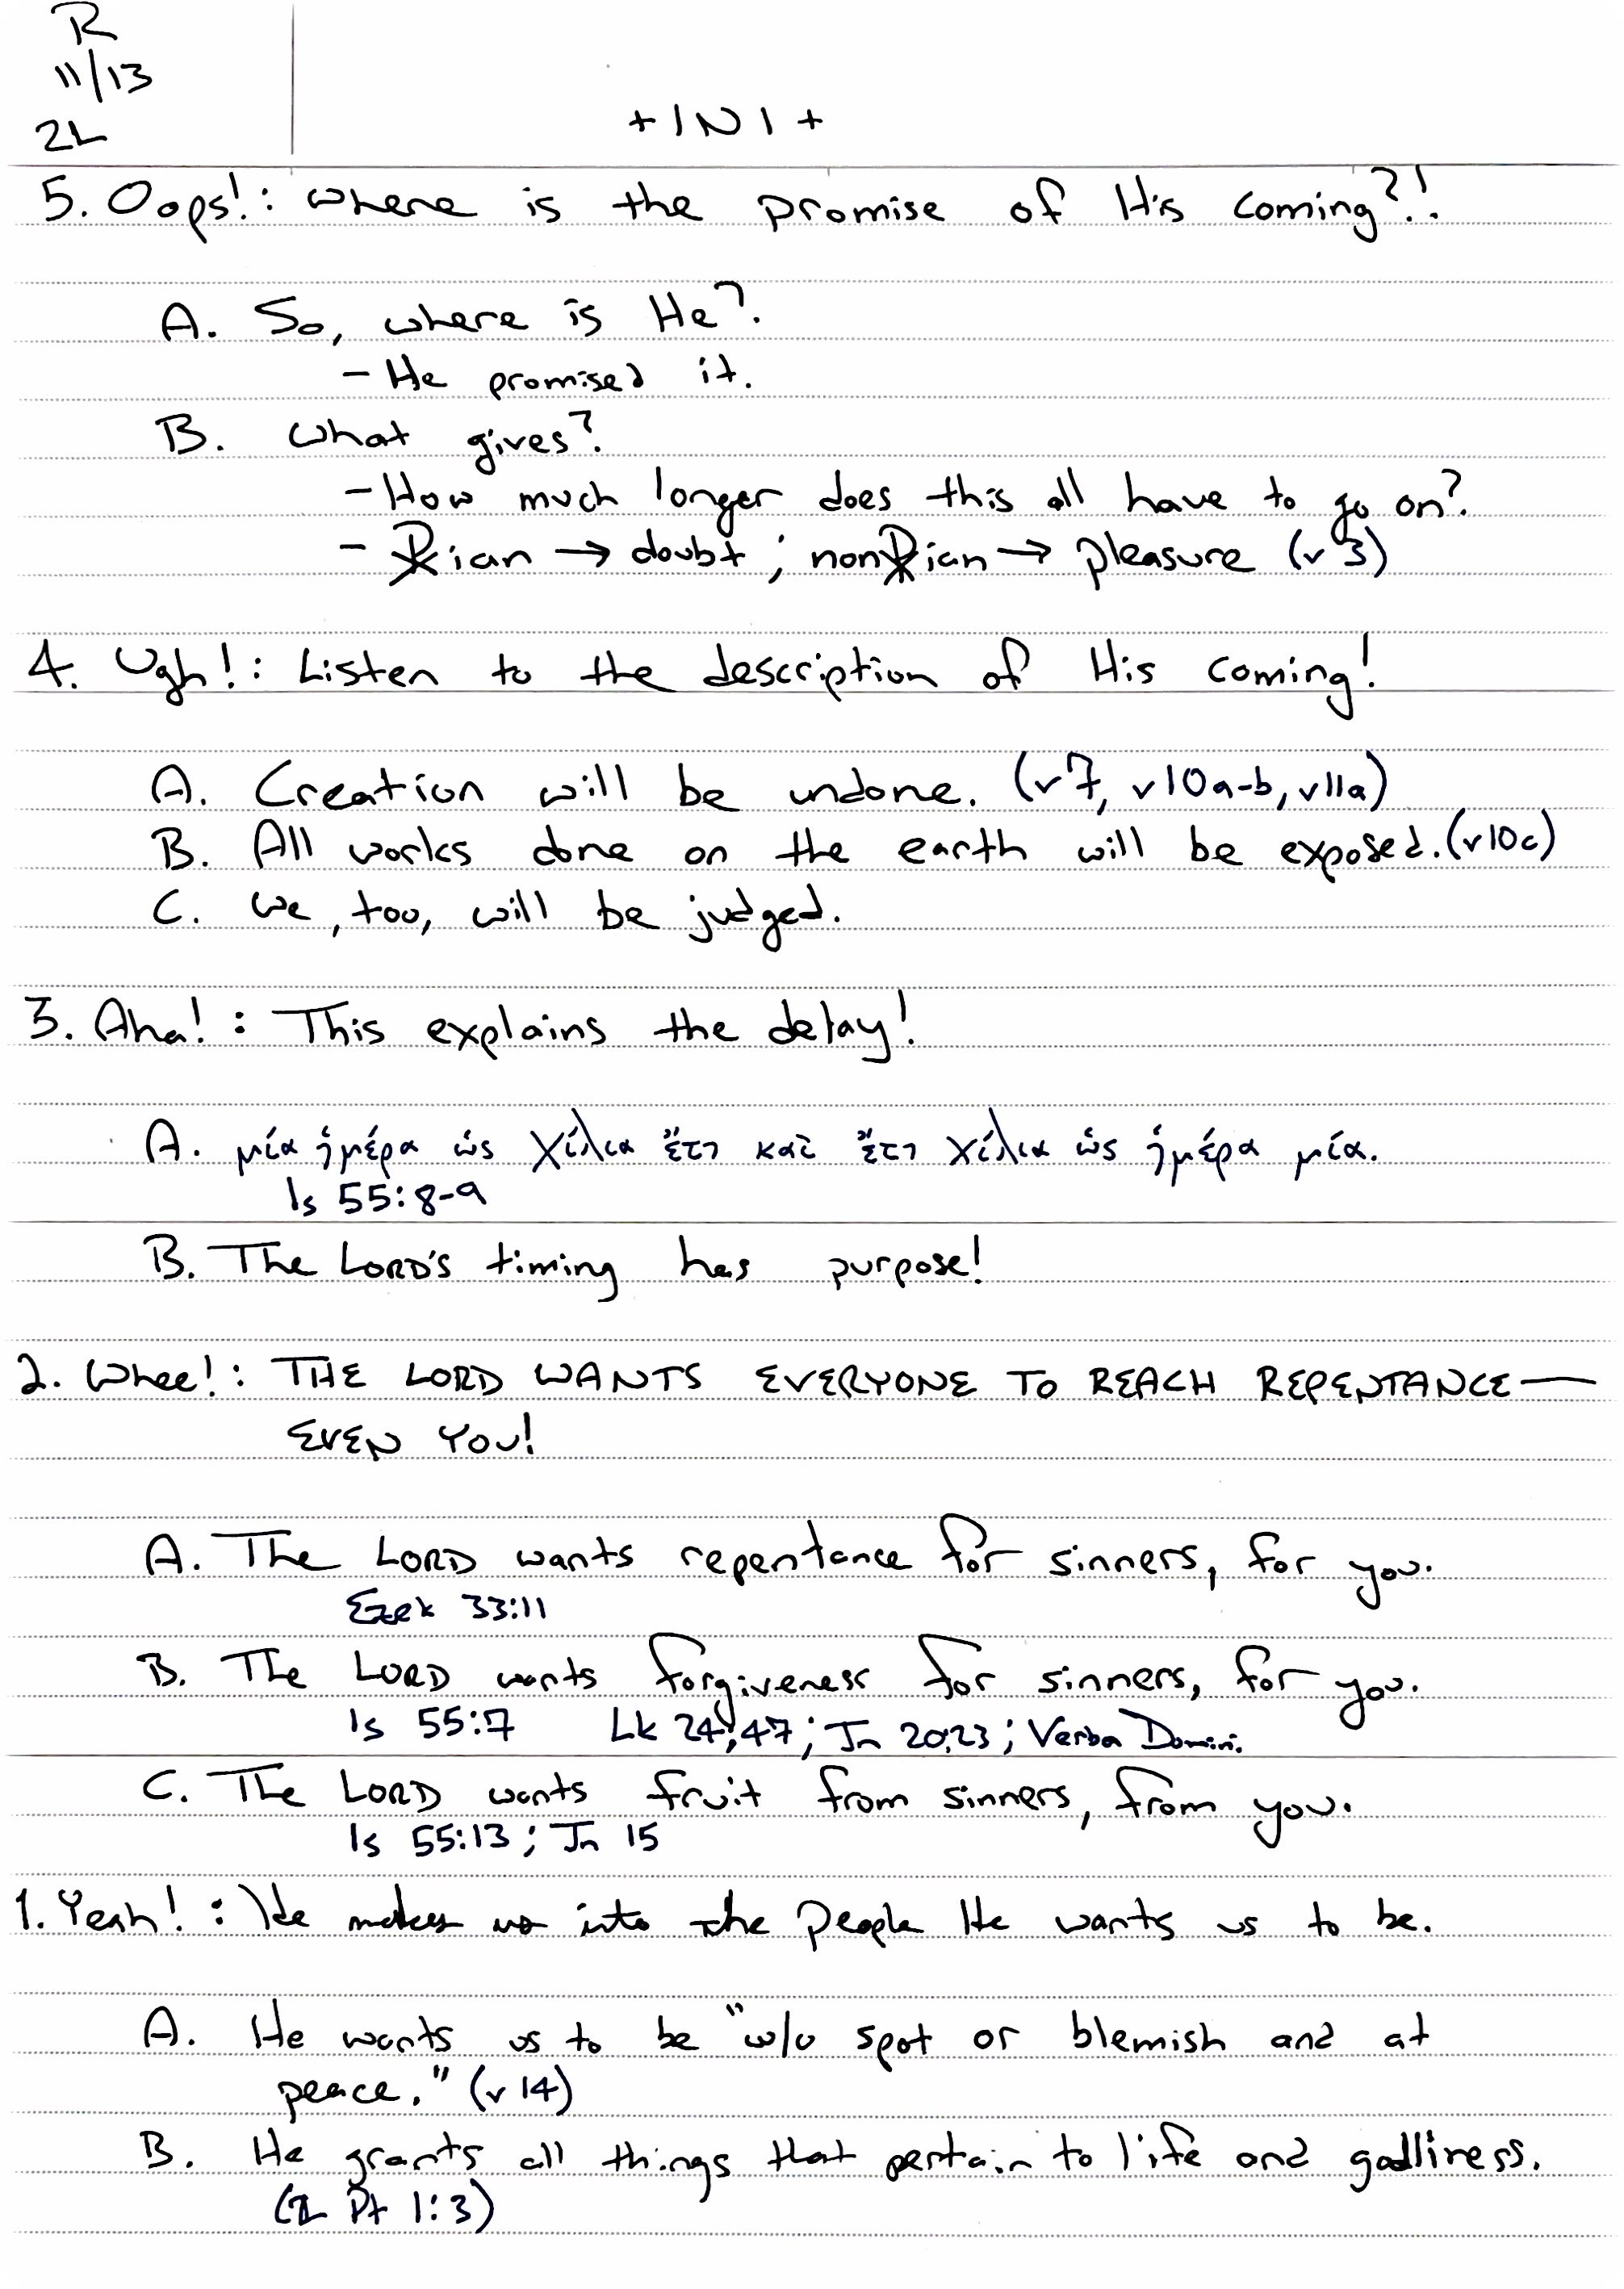 R
11/13
2L
+ I N I +
5. Oops!: Where is the promise of His coming?!
A. So, where is He?
- He promised it.
B. What gives?
- How much longer does this all have to go on?
- ☧ian → doubt ; non☧ian → pleasure (v 3)
4. Ugh!: Listen to the description of His coming!
A. Creation will be undone. (v7, v10a-b, v11a)
B. All works done on the earth will be exposed. (v10c)
C. We, too, will be judged.
3. Aha!: This explains the delay!
A. μία ἡμέρα ὡς χίλια ἔτη καὶ ἔτη χίλια ὡς ἡμέρα μία.
Is 55:8-9
B. The LORD'S timing has purpose!
2. Whee!: THE LORD WANTS EVERYONE TO REACH REPENTANCE—
EVEN YOU!
A. The LORD wants repentance for sinners, for you.
Ezek 33:11
B. The LORD wants forgiveness for sinners, for you.
Is 55:7 Lk 24,47; Jn 20,23; Verba Domini.
C. The LORD wants fruit from sinners, from you.
Is 55:13; Jn 15
1. Yeah!: He makes us into the people He wants us to be.
A. He wants us to be "w/o spot or blemish and at
peace." (v 14)
B. He grants all things that pertain to life and godliness.
(2 Pt 1:3)